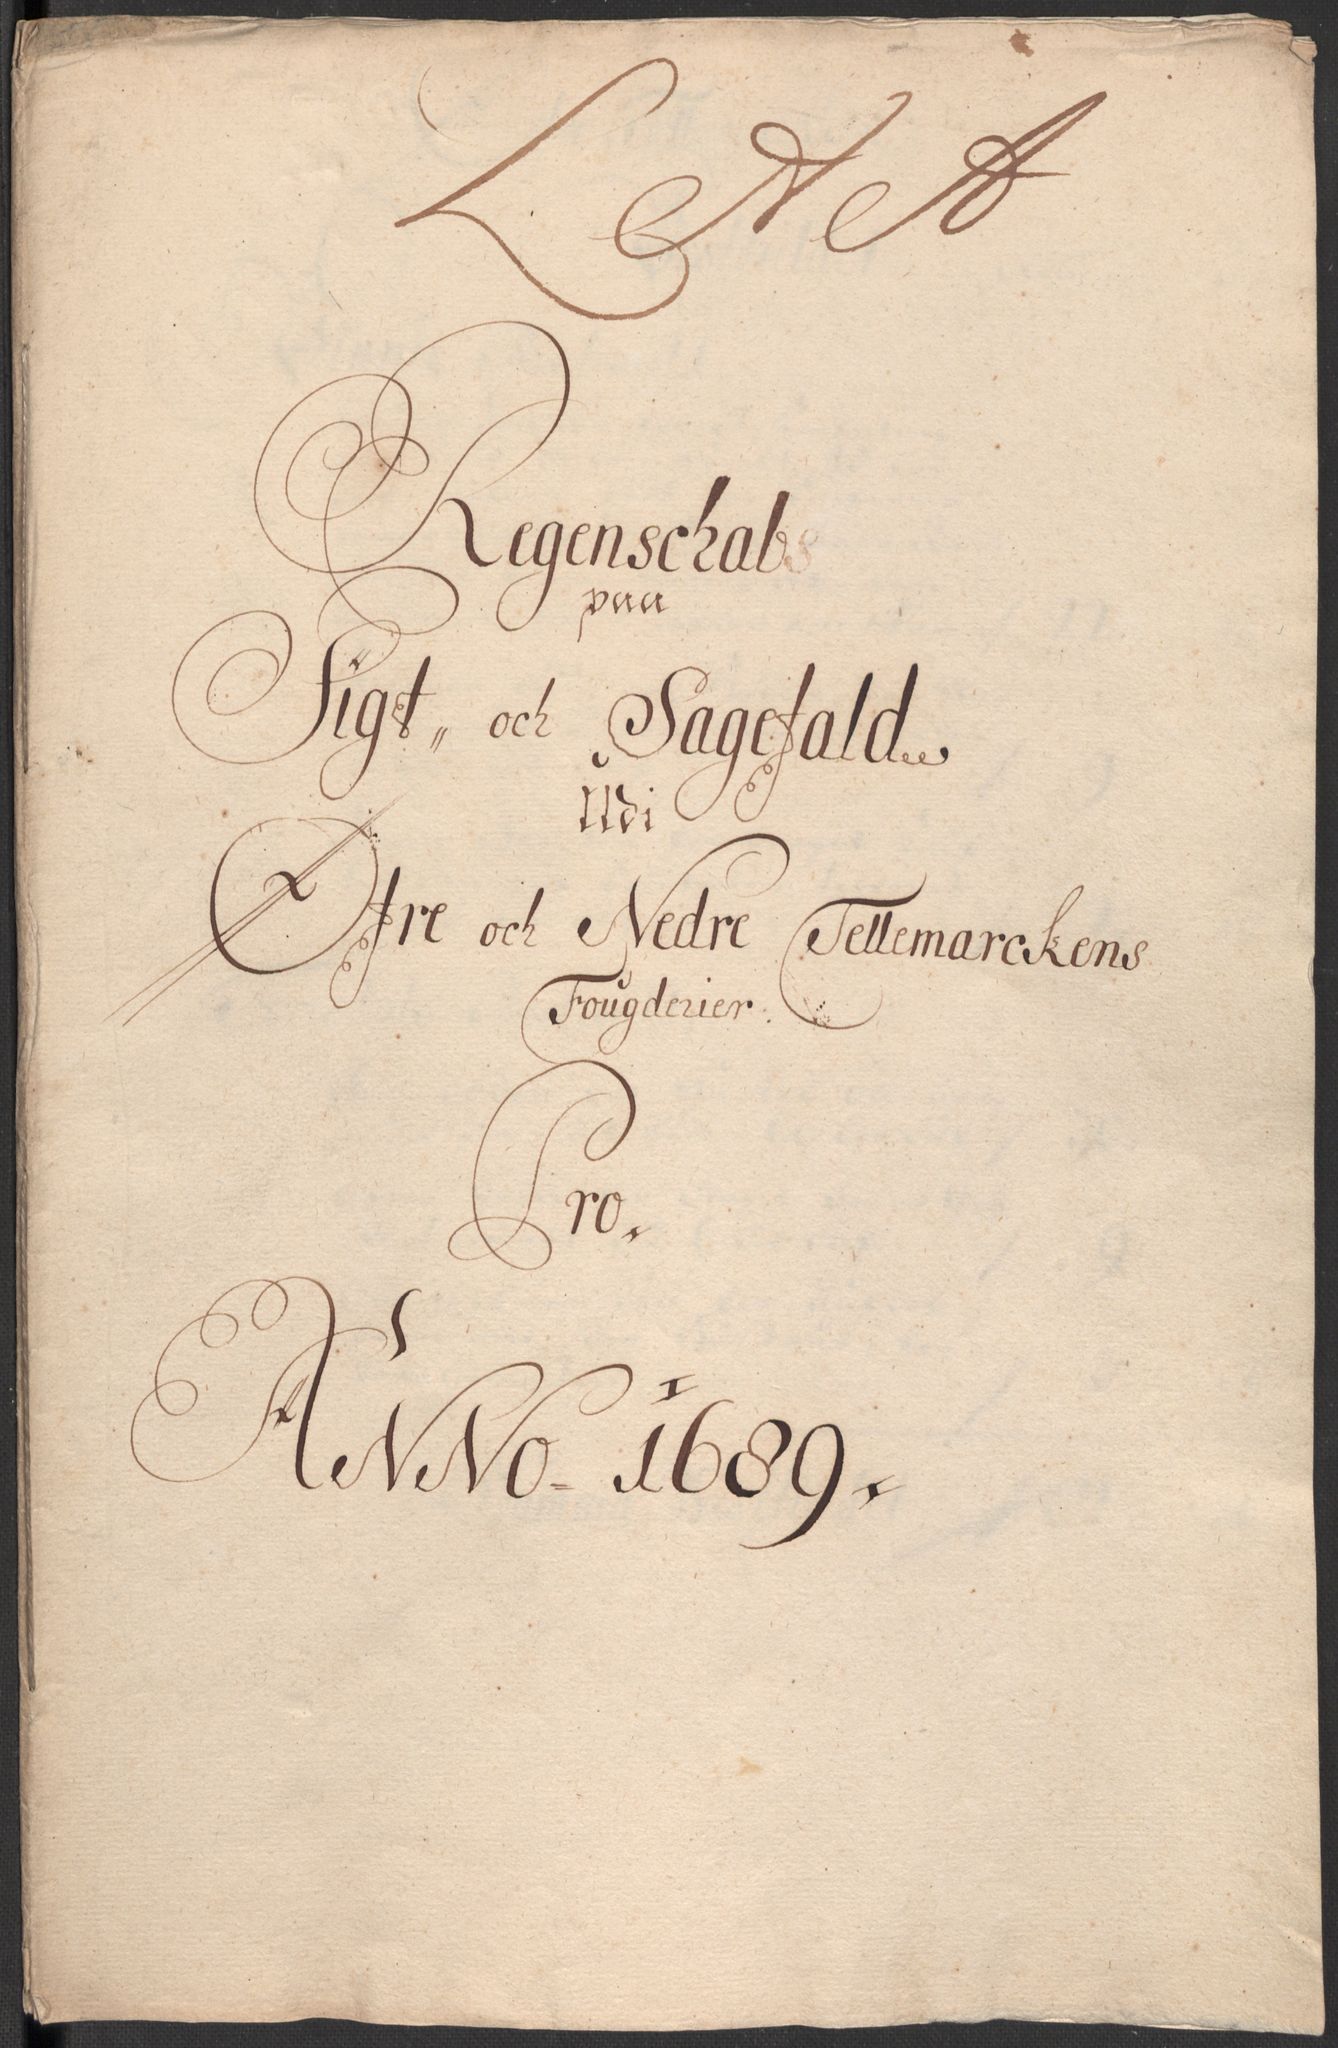 L A A
Regenschabs
paa
Sigt„ och Sagefald
Udi
Øfre och Nedre Tellemarckens
Fougderier.
Pro.
ANNO 1689.